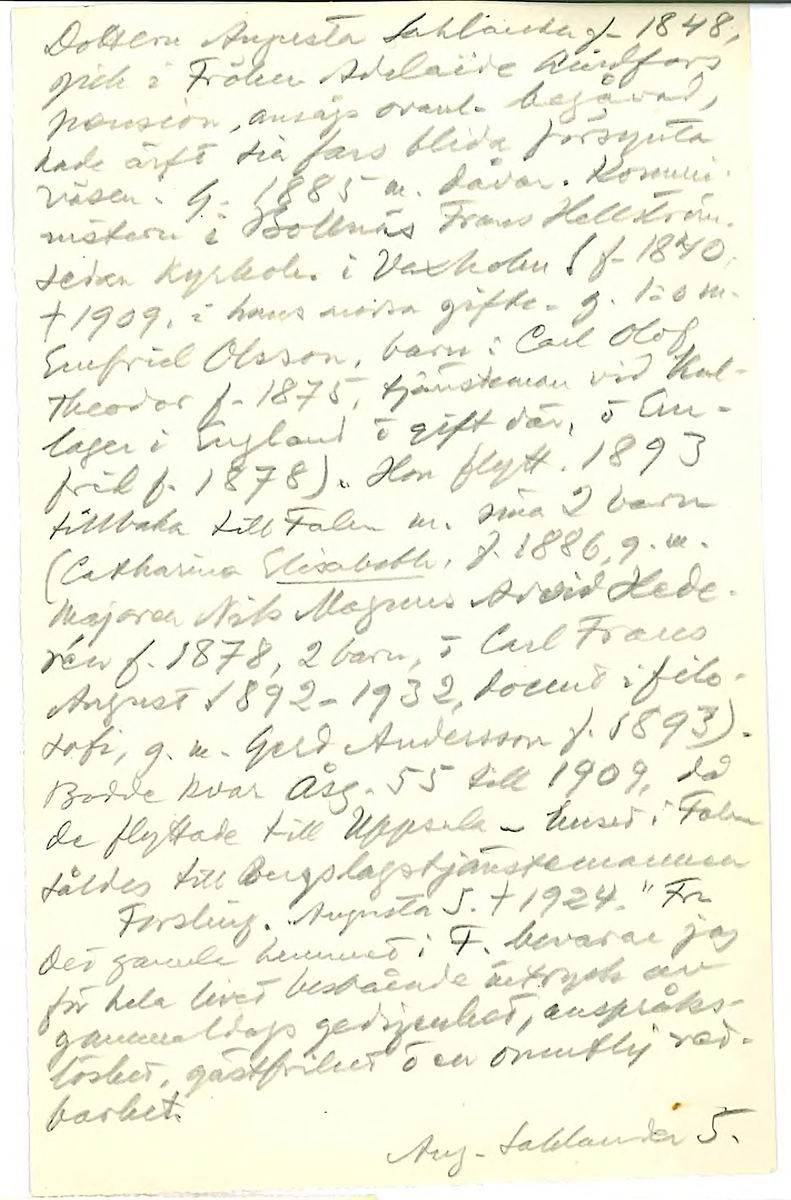 Dottern Augusta Sahlander f- 1848,
gick i Fröken Adelaide Lindfors
pension, ansågs ovanl. begåvad,
hade ärft sin fars blida försynta
väsen. G- 1885 m. dåvar. Komm.
nistern i Bollnäs Frans Hellström.
sedan kyrkoh. i Vaxholm (f-1840,
†1909, i hans andra gifte- g. 1:o m-
Emfrid Olsson, barn: Carl Olof
Theodor f-1875, tjänsteman vid Kul-
lager i England o gift där, o Em-
frid f. 1878). Hon flytt. 1893
tillbaka till Falun m. sina 2 barn
(Catharina Elisabeth, f. 1886, g. m.
majoren Nils Magnus Arvid Hede-
rén f. 1878, 2 barn, o Carl Frans
August 1892-1932, docent i filo-
sofi, g. m. Gerd Andersson f. 1893).
Bodde kvar Åsg. 55 till 1909, då
de flyttade till Uppsala - huset i Falun
såldes till Bergslagstjänstemannen
Forsling. Augusta S. †1924. "Fr
det gamla hemmet i F. bevarar jag
för hela livet bestående intryck av
gammaldags gedigenhet, anspråks-
löshet, gästfrihet o en omutlig red-
barhet.
Aug- Sahlander 5.